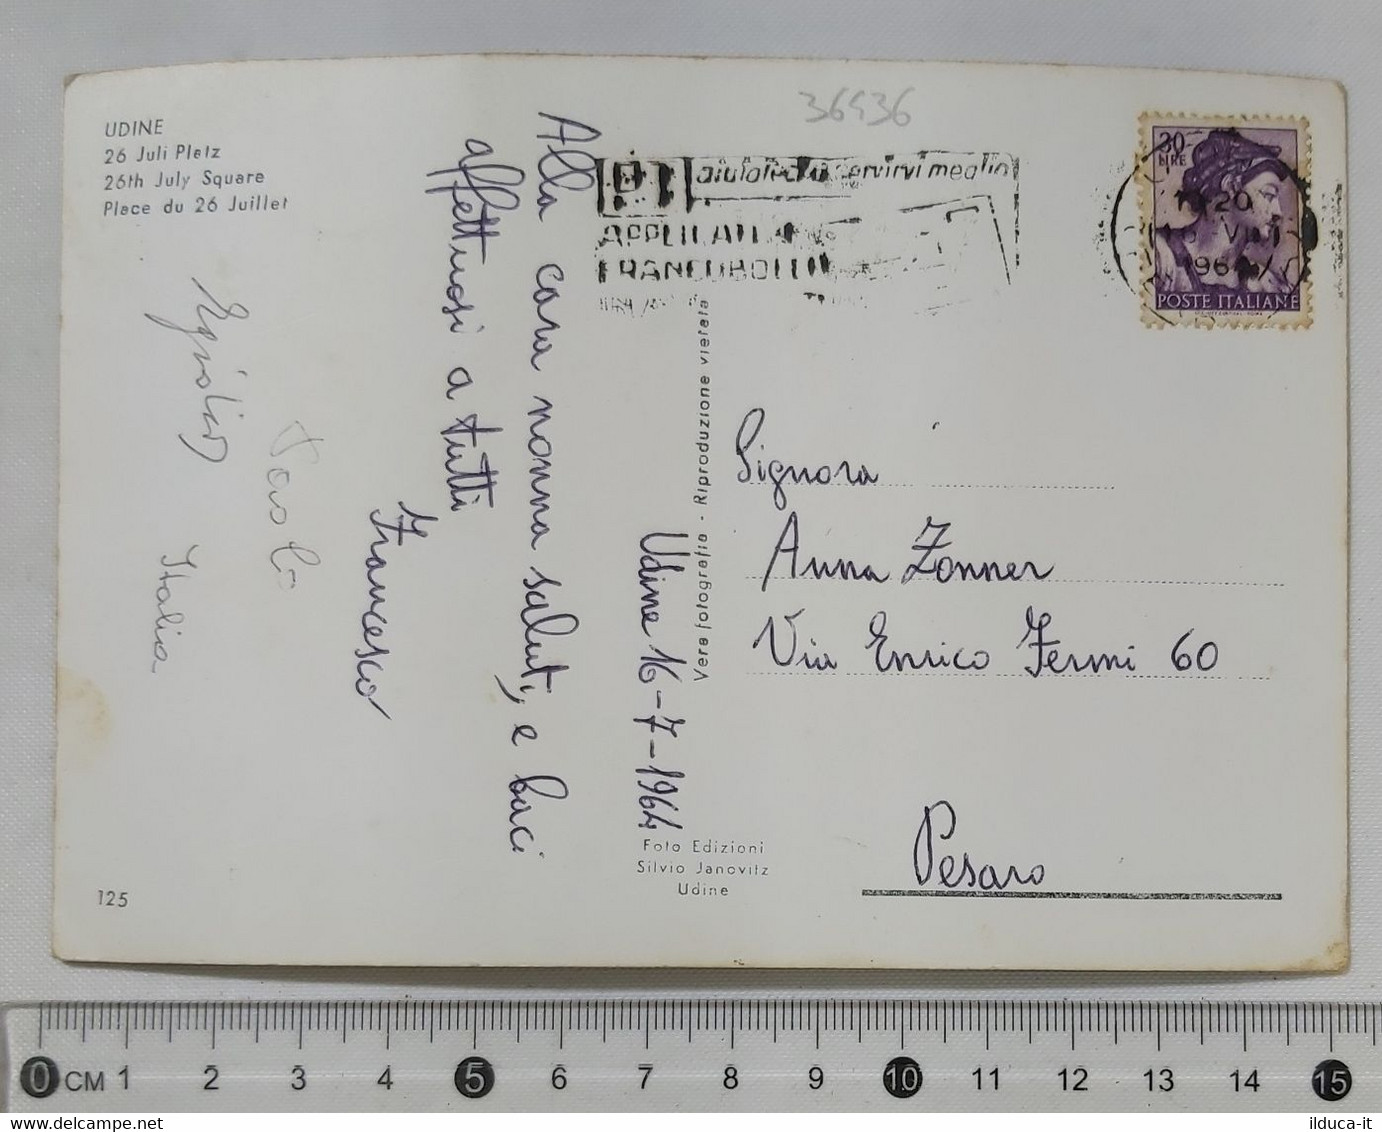 36936
UDINE
26 Juli Platz
26th July Square
Place du 26 Juillet
aiutateci a servirvi meglio
APPLICATE IL
FRANCOBOLLO
30
LIRE
20
VII
196
POSTE ITALIANE
Alla cara nonna saluti, e baci
affettuosi a tutti
Francesco
Paola
Italia
Udine 16-7-1964
Vera fotografia - Riproduzione vietata
Signora
Anna Zonner
Via Enrico Fermi 60
Pesaro
Foto Edizioni
Silvio Janovitz
Udine
125
0 CM 1 2 3 4 5 6 7 8 9 10 11 12 13 14 15
ilduca-it